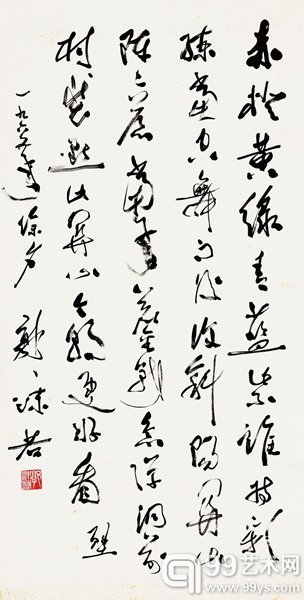 赤橙黄绿青蓝紫谁持彩
练当空舞雨后復斜阳関山
阵々苍当年鏖战急弹洞前
村装点此関山今朝更好看 壁
一九六五年除夕 郭沫若
99艺术网
www.99ys.com